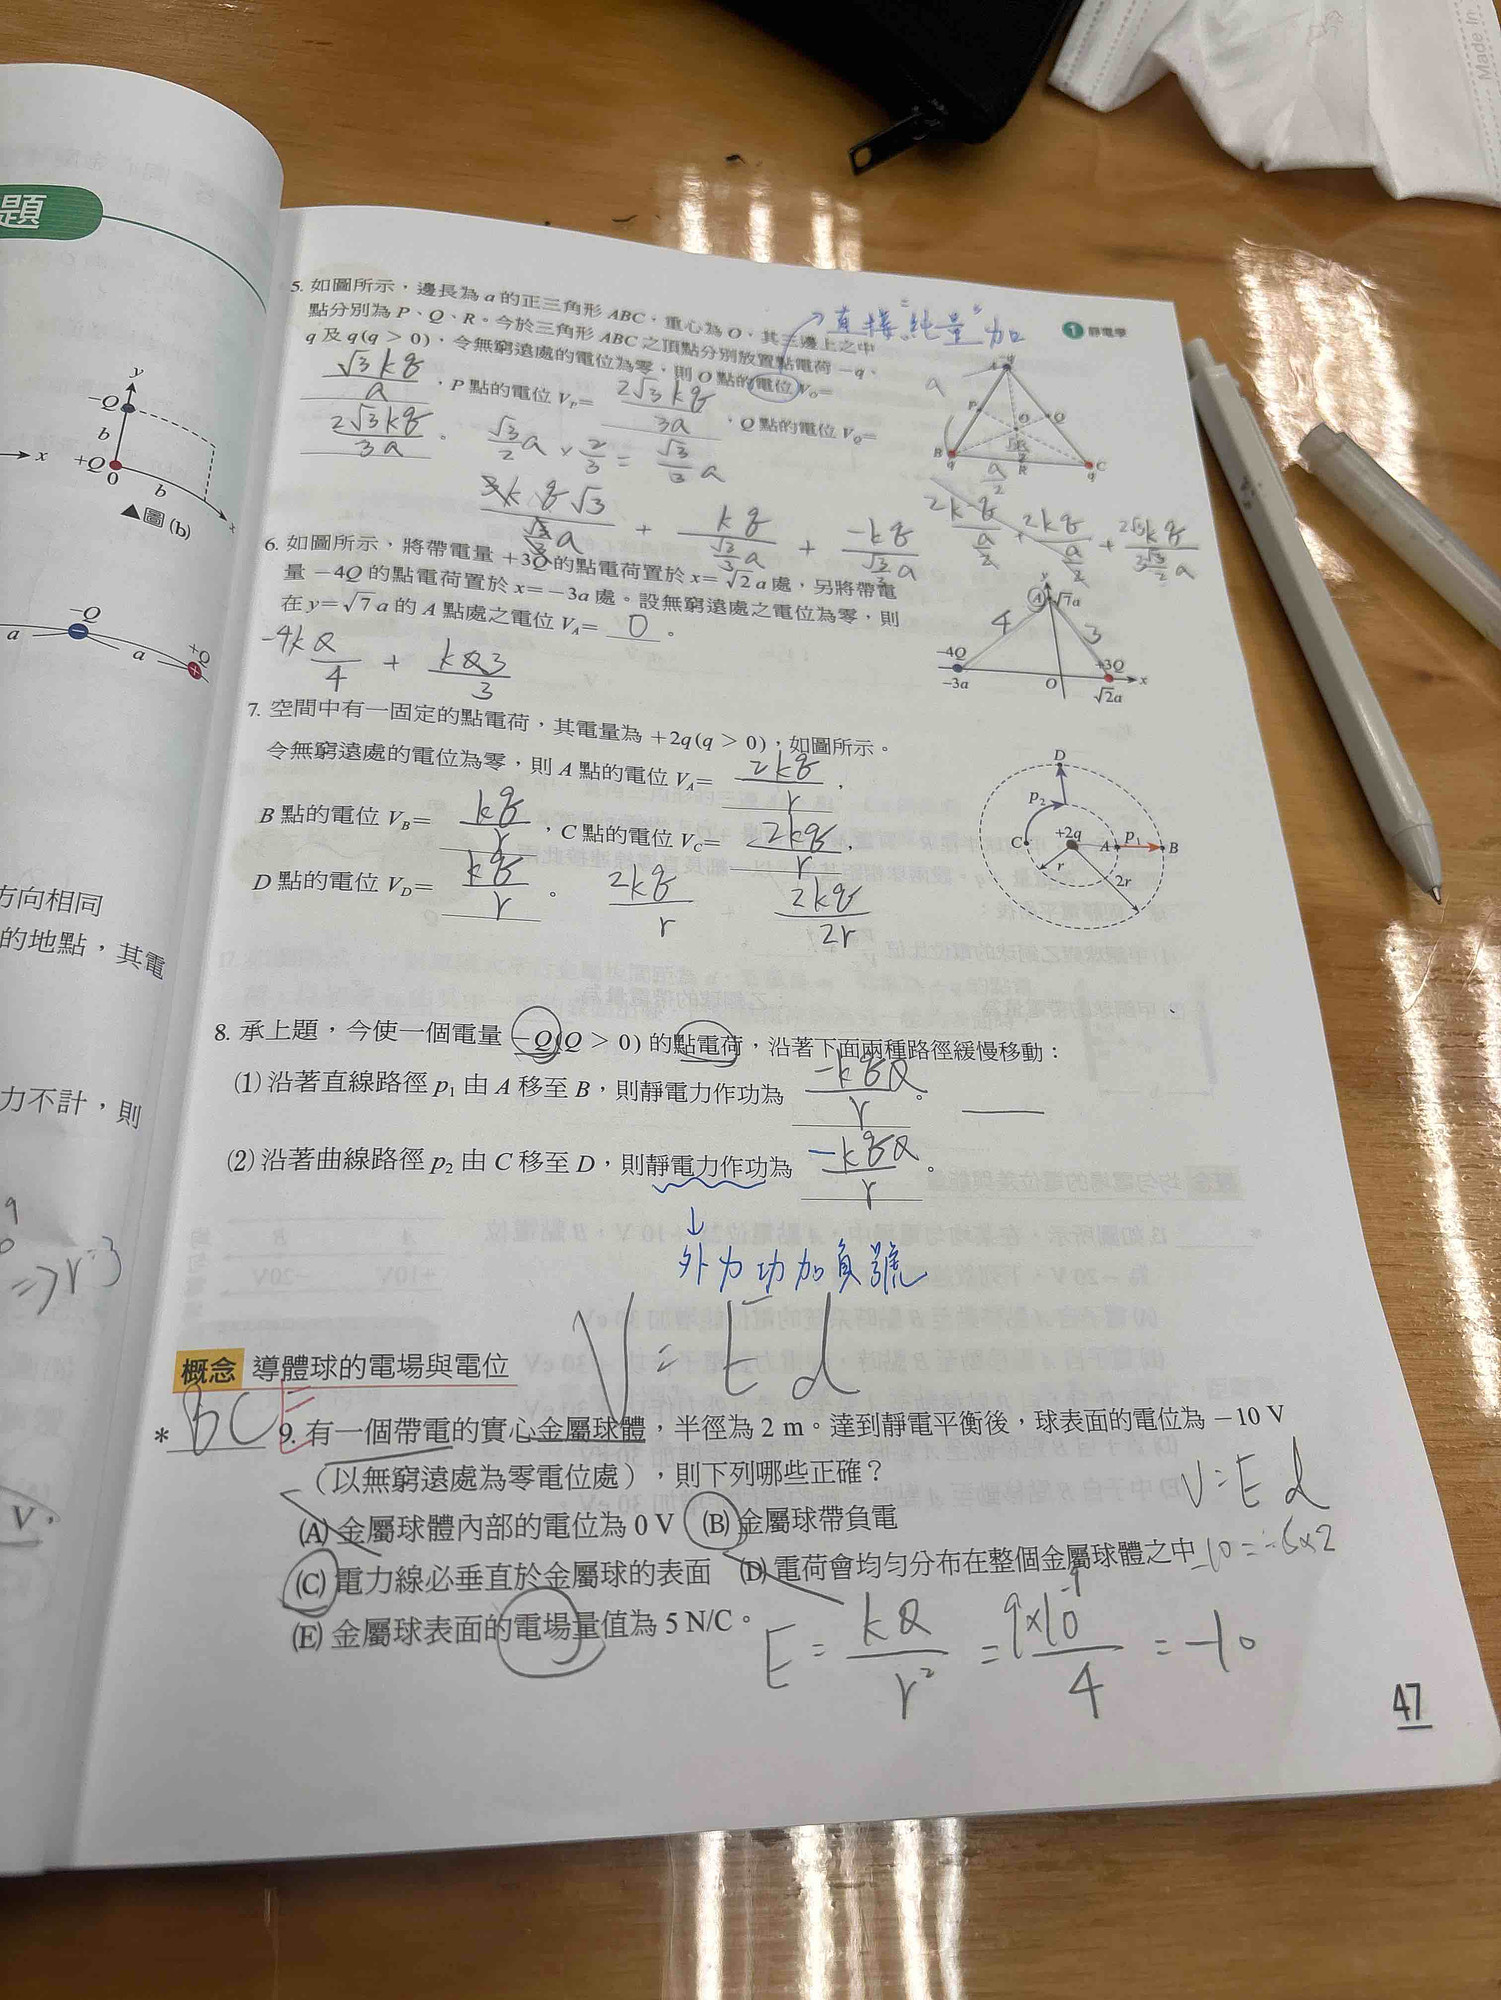 Made In
題
y
−Q
b
+Q
0
b
x
x
▲圖(b)
a
−Q
a
+Q
方向相同
的地點，其電
力不計，則
=>r=3
V，
❶ 靜電學
直接"純量"加
5. 如圖所示，邊長為 a 的正三角形 ABC，重心為 O，其三邊上之中
點分別為 P、Q、R。今於三角形 ABC 之頂點分別放置點電荷 −q、
q 及 q(q > 0)，令無窮遠處的電位為零，則 O 點的電位 V₀=
√3kq/a ，P 點的電位 Vₚ= 2√3kq/3a ，Q 點的電位 V_Q=
2√3kq/3a 。 √3/2 a × 2/3 = √3/3 a
6. 如圖所示，將帶電量 +3Q 的點電荷置於 x=√2a 處，另將帶電
量 −4Q 的點電荷置於 x=−3a 處。設無窮遠處之電位為零，則
在 y=√7a 的 A 點處之電位 V_A= 0 。
−4kQ/4 + kQ3/3
A √7a
4 3
−4Q +3Q
−3a O √2a x
7. 空間中有一固定的點電荷，其電量為 +2q(q > 0)，如圖所示。
令無窮遠處的電位為零，則 A 點的電位 V_A= 2kq/r ，
B 點的電位 V_B= kq/r ，C 點的電位 V_C= 2kq/r ，
D 點的電位 V_D= kq/r 。 2kq/r 2kq/2r
D
p₂
C +2q A p₁ B
r 2r
8. 承上題，今使一個電量 −Q(Q > 0) 的點電荷，沿著下面兩種路徑緩慢移動：
(1) 沿著直線路徑 p₁ 由 A 移至 B，則靜電力作功為 −kqQ/r 。
(2) 沿著曲線路徑 p₂ 由 C 移至 D，則靜電力作功為 −kqQ/r 。
↓
外力功加負號
V = Ed
概念 導體球的電場與電位
* BCE 9. 有一個帶電的實心金屬球體，半徑為 2 m。達到靜電平衡後，球表面的電位為 −10 V
（以無窮遠處為零電位處），則下列哪些正確？
V=Ed
(A) 金屬球體內部的電位為 0 V (B) 金屬球帶負電
(C) 電力線必垂直於金屬球的表面 (D) 電荷會均勻分布在整個金屬球體之中
−10=−5×2
(E) 金屬球表面的電場量值為 5 N/C。
E = kQ/r² = 9×10⁹/4 = −10
47